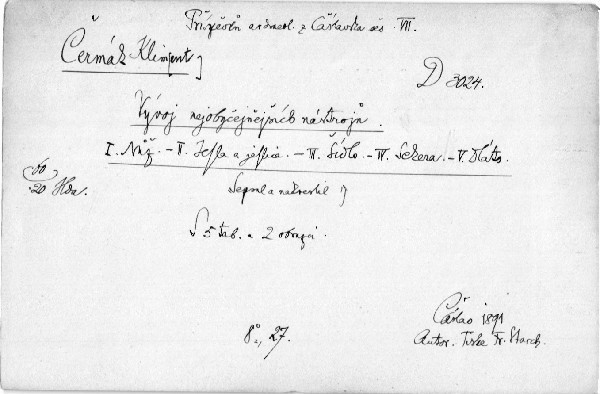 Příspěvků archaeol. z Čáslavska čís. VII.
Čermák Kliment
D 3024.
Vývoj nejobyčejnějších nástrojů.
I. Nůž. – II. Jehla a jehlice. – III. Šídlo. – IV. Sekera. – V. Dláto.
20
Sepsal a nakreslil
S 5 tab. a 2 obrazci.
Čáslav 1891
8°, 27.
Autor. Tiskem Fr. Starch.